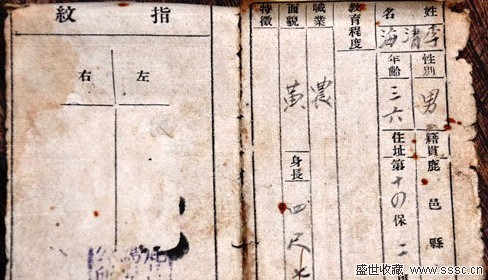 姓名 李清海
性別 男 籍貫 鹿邑縣
年齡 三六 住址 第十四保二
教育程度
職業 農
面貌 黃 身長 四尺七
特徵
指紋
左 右
盛世收藏 www.sssc.cn